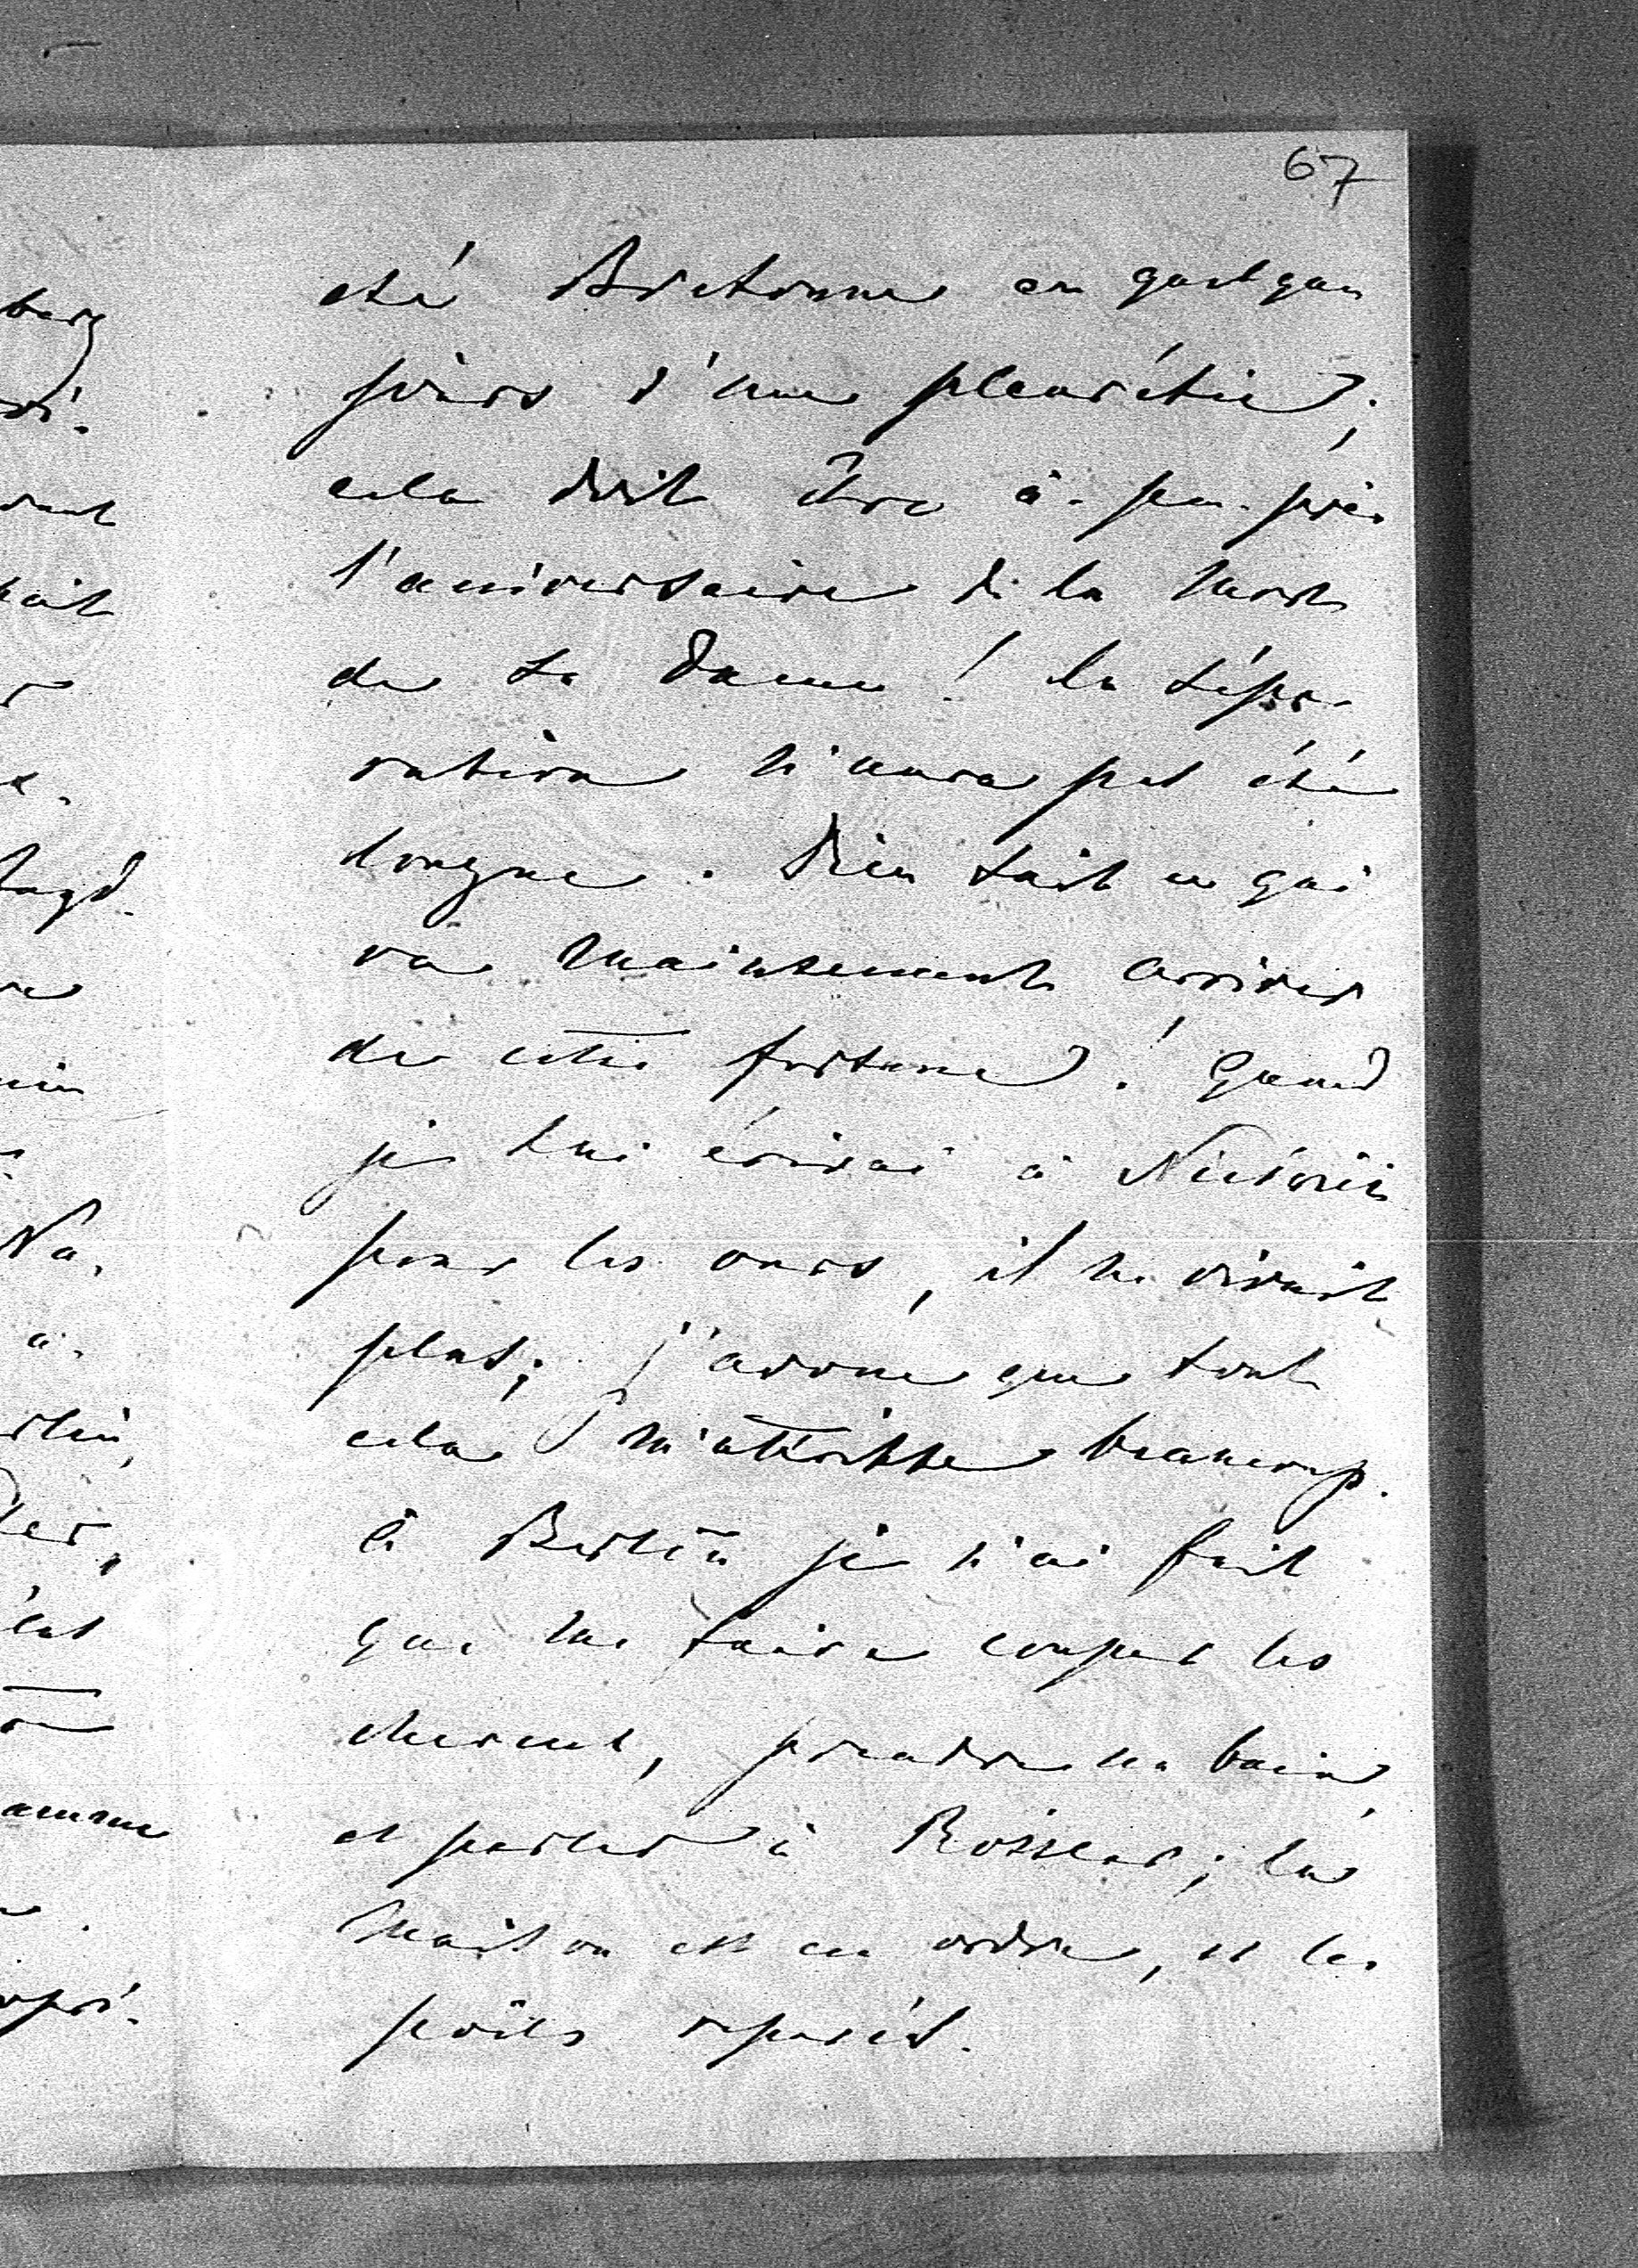 67
été Bretonne en quelques
jours d'une pleurésie ;
cela doit être à-peu-près
l'aniversaire de la mort
de sa Dame ! la sépa-
ration n'aura pas été
longue. Dieu sait ce qui
va maintenant arriver
de cette fortune ! Quand
je lui écrivai à
pour les ours, il ne vivait
plus ; j'avoue que tout
cela m'attriste beaucoup.
à Berlin je n'ai fait
que me faire couper les
cheveux, prendre un bain,
et parler à Rössler ; la
maison est en ordre, et les
poëles reparés.